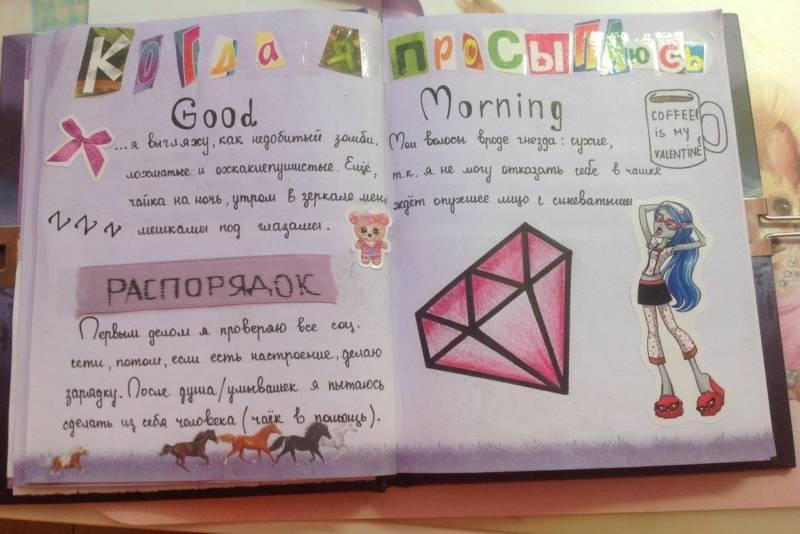 Когда я просыпаюсь
Good Morning
...я выгляжу, как недобитый зомби. Мои волосы вроде гнезда: сухие,
лохматые и охкакиепушистые. Ещё, т.к. я не могу отказать себе в чашке
чайка на ночь, утром в зеркале меня ждёт опухшее лицо с синеватыми
мешками под глазами.
COFFEE
IS MY
VALENTINE
ZZZ
РАСПОРЯДОК
Первым делом я проверяю все соц.
сети, потом, если есть настроение, делаю
зарядку. После душа/умывашек я пытаюсь
сделать из себя человека (чаёк в помощь).